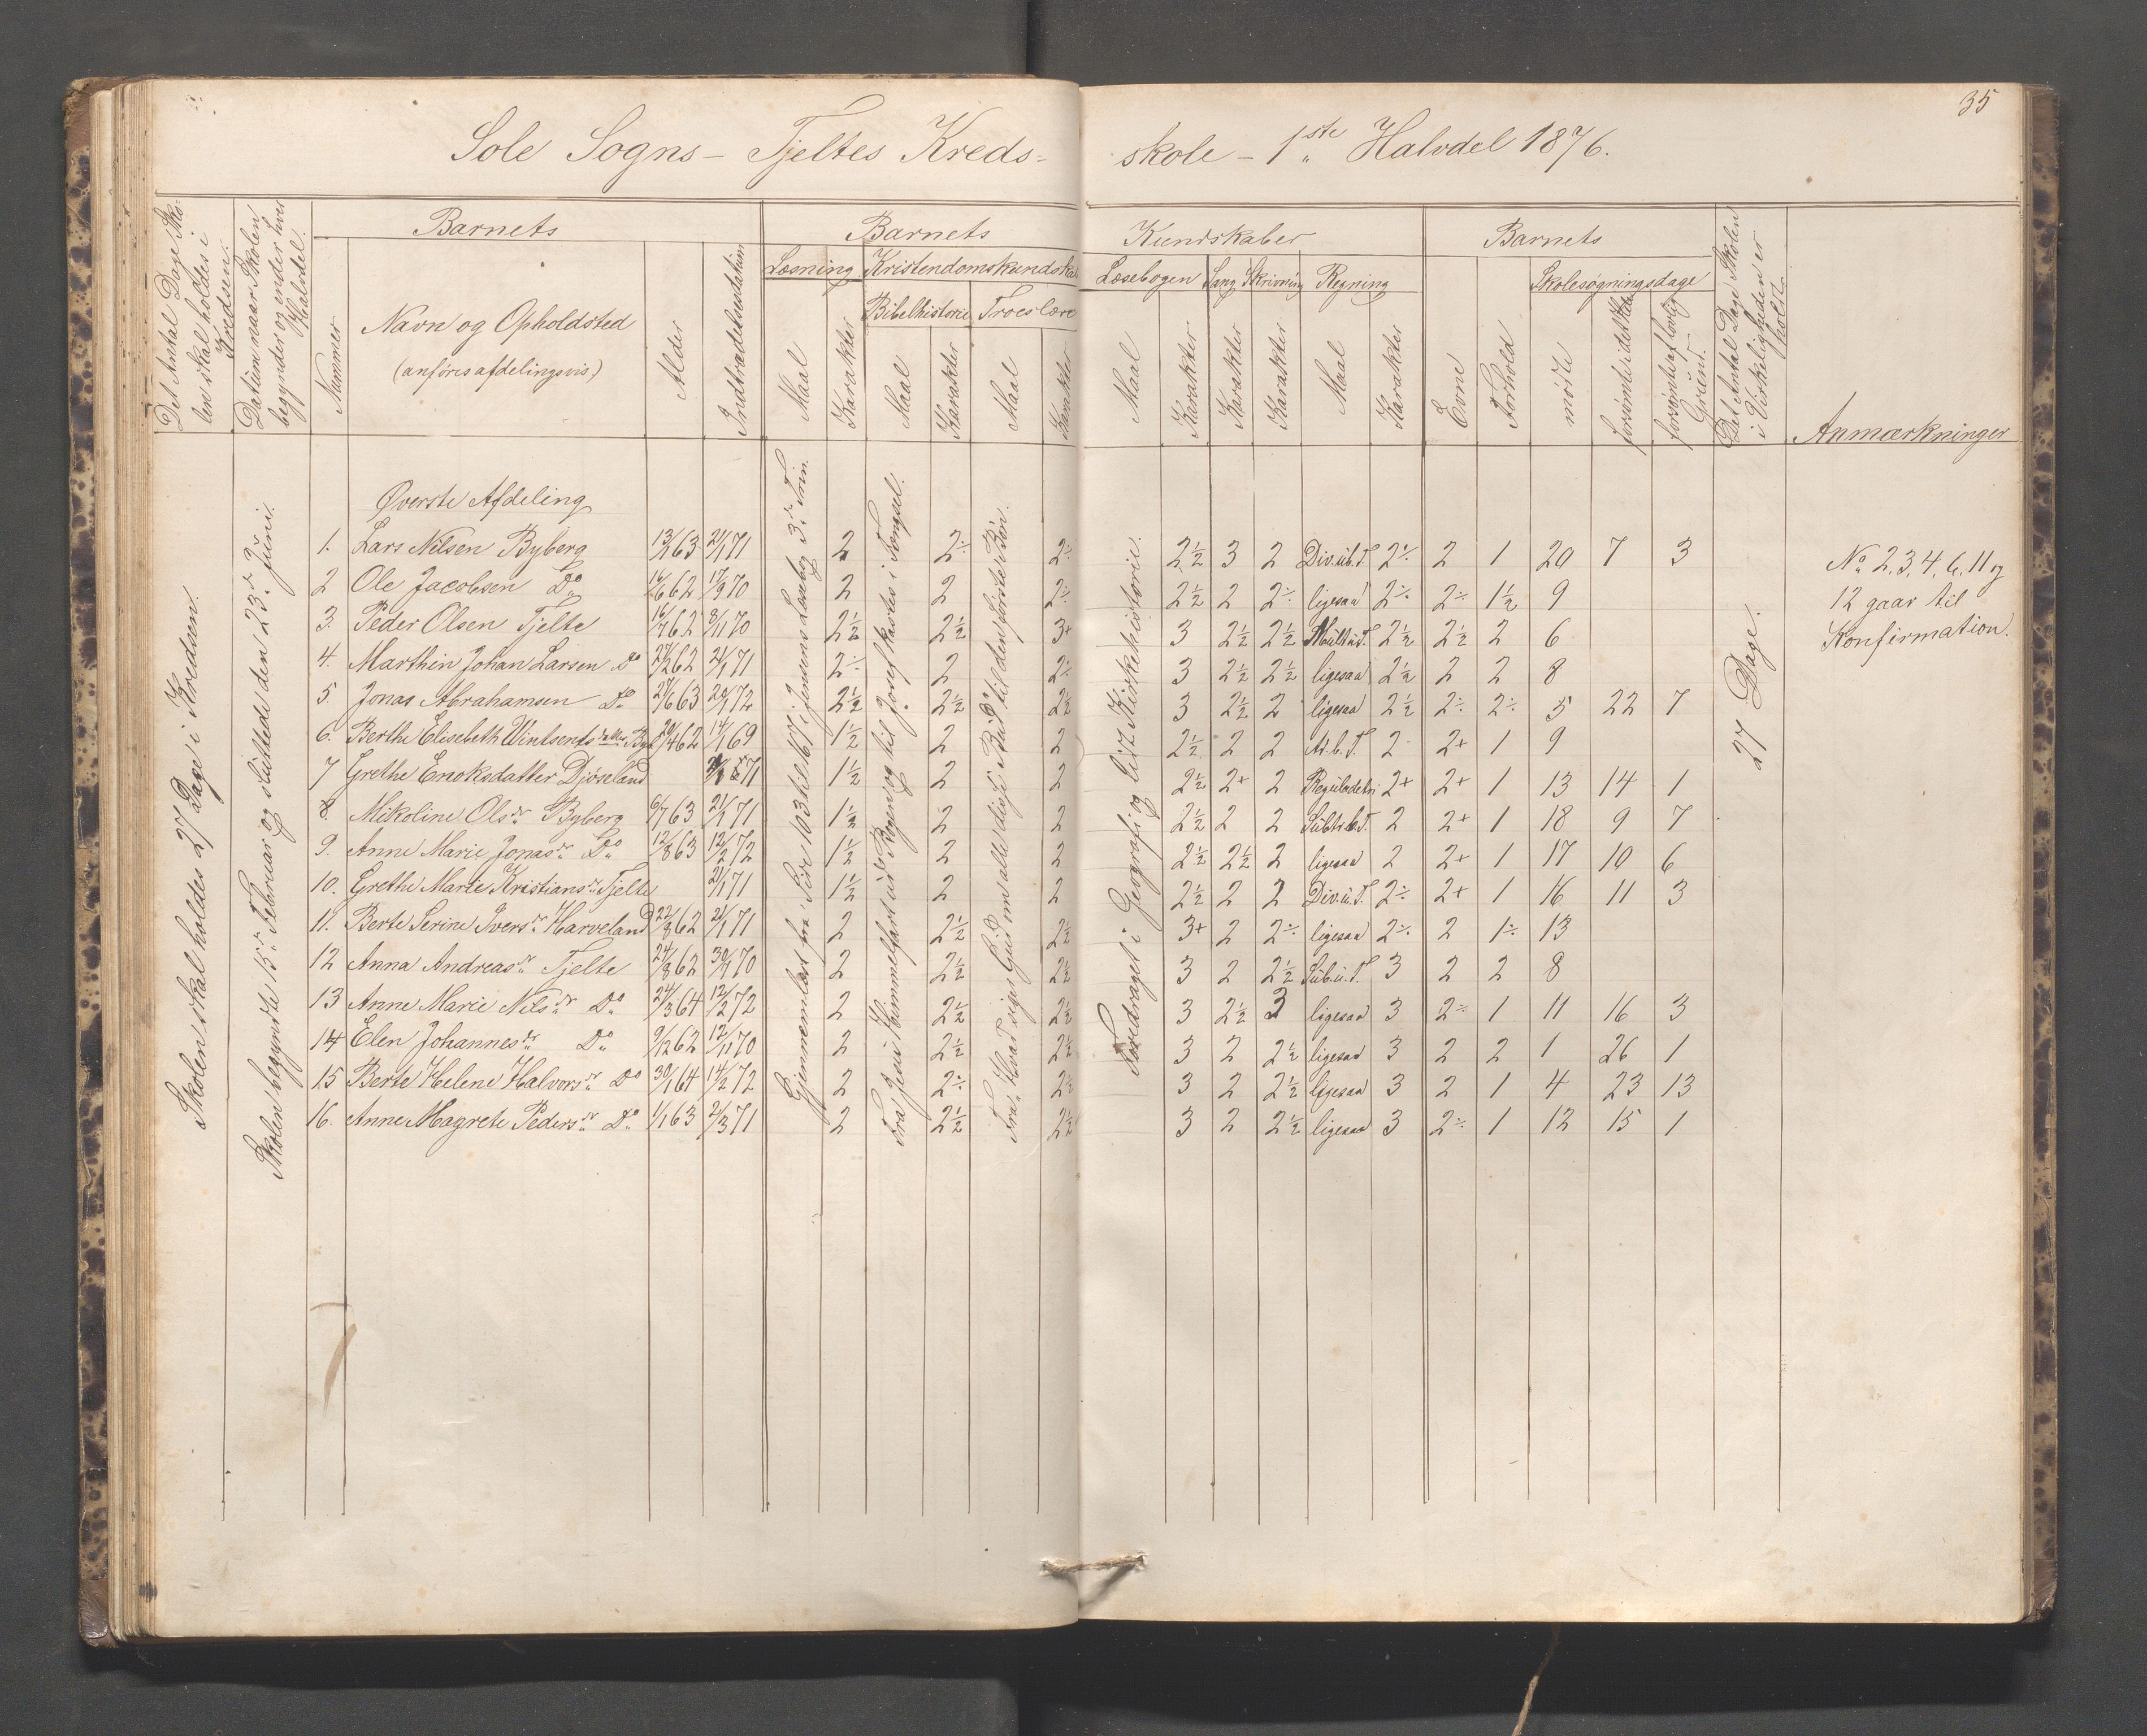 35
Sole Sogns – Tjeltes Kreds-
skole – 1ste Halvdel 1876.
Det Antal Dage Sko-
len skal holdes i
Kredsen.
Datum naar Skolen
begynder og ender hver
Halvdel.
Barnets
Nummer
Navn og Opholdsted
(anføres afdelingsvis)
Alder
Indtrædelsesdatum
Barnets
Kundskaber
Læsning
Kristendomskundska
Bibelhistorie
Troeslære
Maal
Karakter
Maal
Karakter
Maal
Karakter
Læsebogen
Sang
Skrivning
Regning
Maal
Karakter
Karakter
Karakter
Maal
Karakter
Barnets
Skolesøgningsdage
Evne
Forhold
mødte
forsømte i det Hele
forsømte af lovlig
Grund.
Det Antal Dage Skolen
i Virkeligheden er
holdt
Anmærkninger
Skolen skal holdes 27 Dage i Kredsen.
Skolen begyndte 15de Februar og sluttede den 23de Juni.
Gjennemlæst fra Side 103 til 167 i Jensens Læsebog 3die Trin.
Fra Jesu Himmelfart ud Bogen og til Josef kastes i Fængsel.
Foredraget i Geografi og lidt Kirkehistorie.
27 Dage.
Øverste Afdeling
1. Lars Nilsen Byberg 13/1 63 21/1 71 2 2÷ 2÷ 2½ 3 2 Div.u.b.T. 2÷ 2 1 20 7 3
2 Ole Jacobsen Do 16/6 62 17/9 70 2 2 2÷ 2½ 2 2÷ ligesaa 2÷ 2÷ 1½ 9
3. Peder Olsen Tjelte 16/7 62 8/11 70 2½ 2½ 3+ 3 2½ 2½ Mult.u.T. 2½ 2½ 2 6
4. Marthin Johan Larsen Do 27/2 62 21/1 71 2÷ 2 2÷ 3 2½ 2½ ligesaa 2½ 2 2 8
5. Jonas Abrahamsen Do 27/6 63 20/1 72 2½ 2½ 2½ 3 2½ 2 ligesaa 2½ 2÷ 2÷ 5 22 7
6. Berthe Elisebeth Wintsents 20/4 62 14/1 69 1½ 2 2 2½ 2 2 Ad.b.T. 2 2+ 1 9
7 Grethe Enoksdatter Djøseland 71 1½ 2 2 2½ 2+ 2 Reguladetri 2+ 2+ 1 13 14 1
8. Mikoline Olsdr Byberg 6/7 63 21/1 71 1½ 2 2 2½ 2 2 Subtr.b.T. 2 2+ 1 18 9 7
9. Anne Marie Jonasdr Do 12/8 63 12/2 72 1½ 2 2 2½ 2½ 2 ligesaa 2 2+ 1 17 10 6
10. Grethe Marie Kristiansdr Tjelte 21/1 71 1½ 2 2 2½ 2 2 Div.u.T. 2÷ 2+ 1 16 11 3
11. Berte Serine Iversdr Harveland 22/3 62 21/1 71 2 2½ 2½ 3+ 2 2÷ ligesaa 2÷ 2 1÷ 13
12 Anna Andreasdr Tjelte 24/8 62 30/9 70 2 2½ 2½ 3 2 2½ Sub.u.T. 3 2 2 8
13 Anne Marie Nilsdr Do 24/3 64 12/2 72 2 2½ 2½ 3 2½ 3 ligesaa 3 2÷ 1 11 16 3
14 Elen Johannesdr Do 9/12 62 12/11 70 2 2½ 2½ 3 2 2½ ligesaa 3 2 2 1 26 1
15 Berte Helene Halvorsdr Do 30/1 64 14/2 72 2 2÷ 2½ 3 2 2½ ligesaa 3 2 1 4 23 13
16. Anne Magrete Pedersdr Do 1/1 63 2/3 71 2 2½ 2½ 3 2 2½ ligesaa 3 2÷ 1 12 15 1
No 2, 3, 4, 6, 11 og
12 gaar til
Konfirmation.